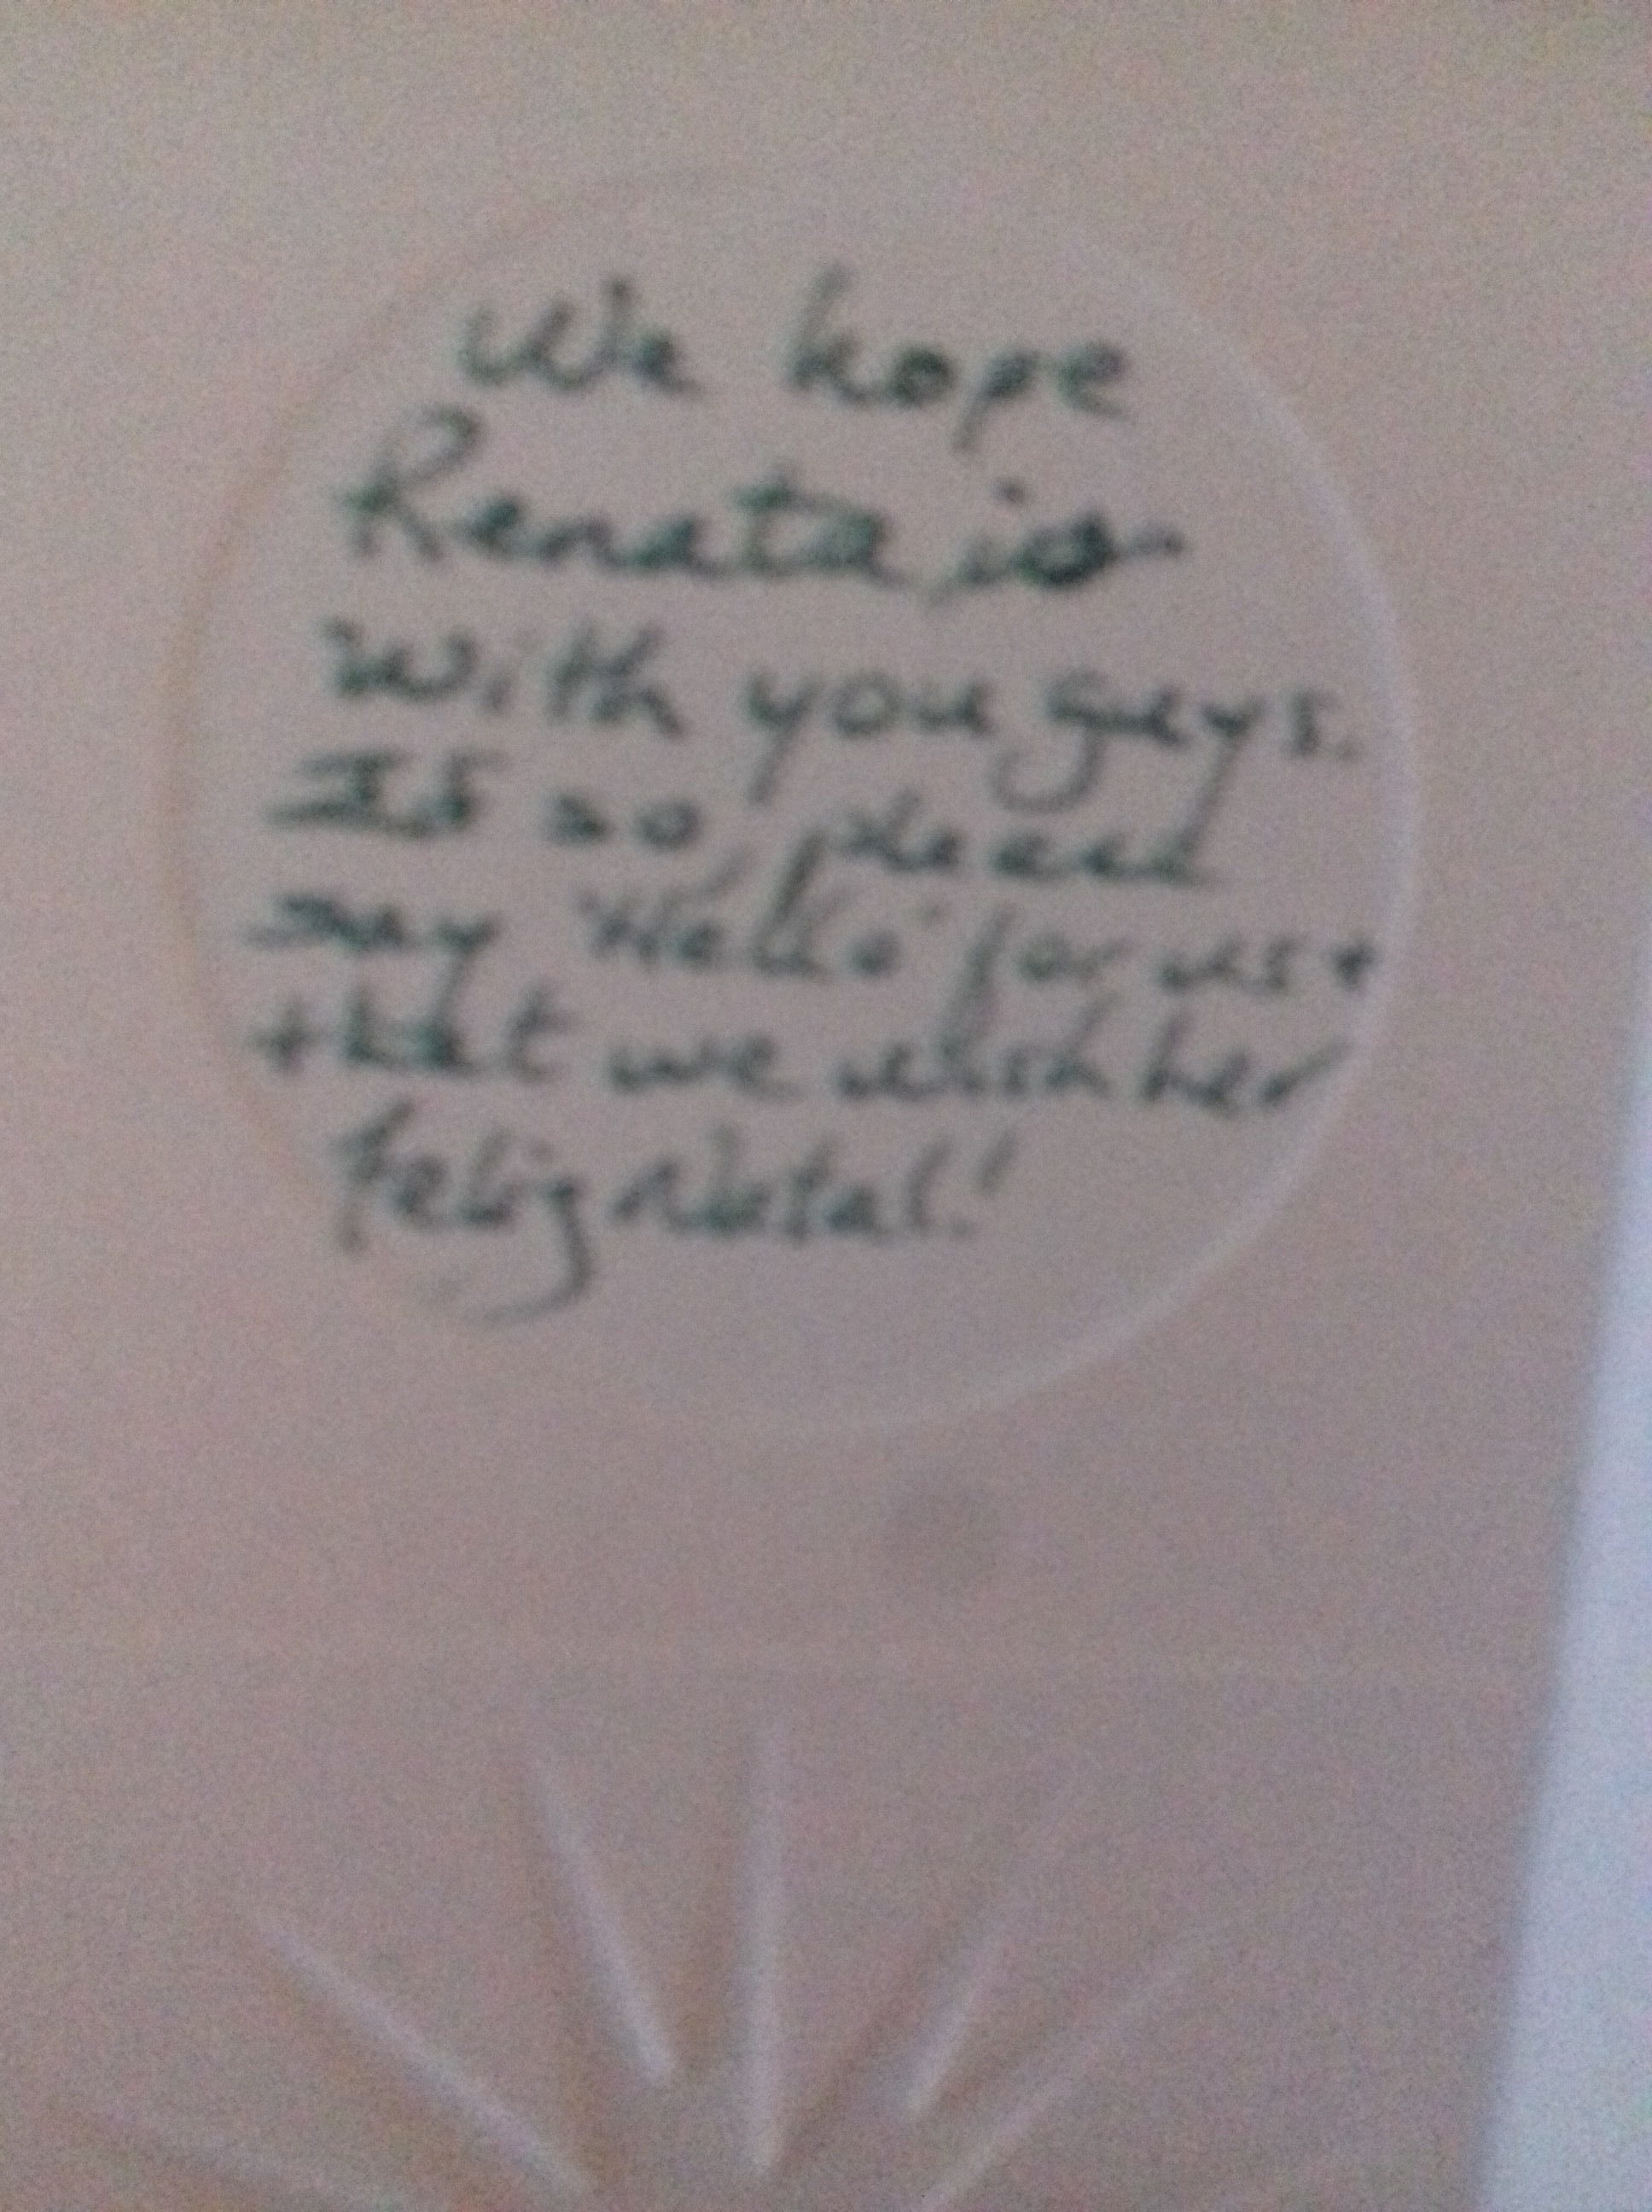 We hope
Renata is
with you guys.
If so, please
say "Hello" for us +
that we wish her
Feliz Natal!